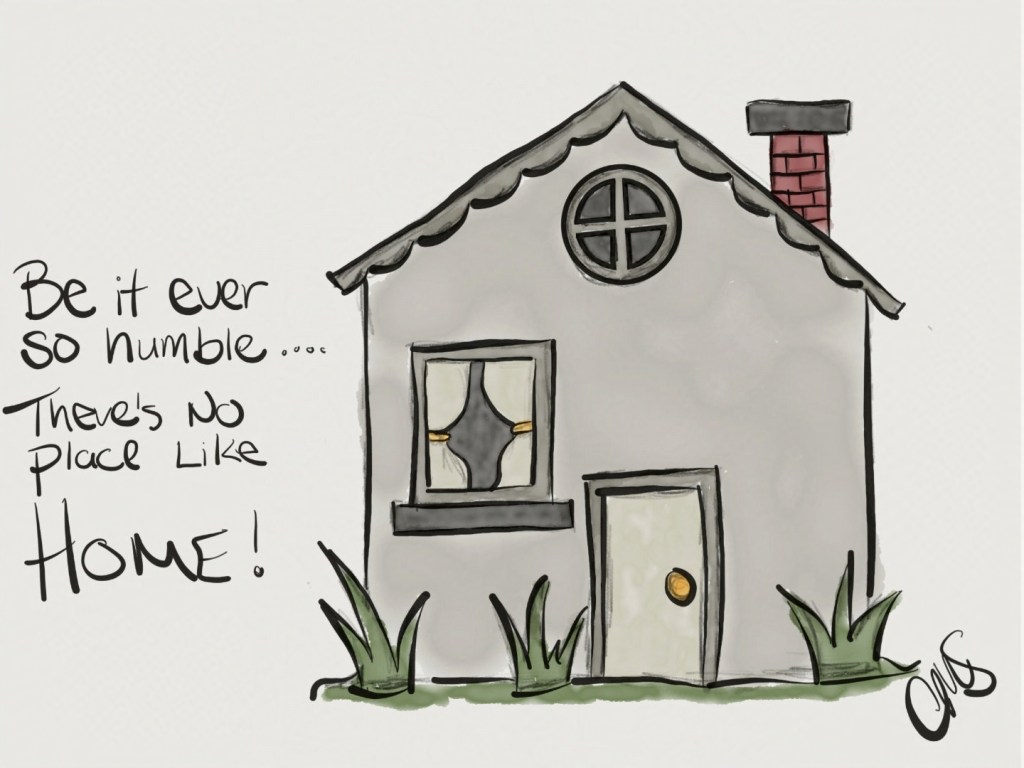 Be it ever
so humble....
There's No
place Like
HOME!